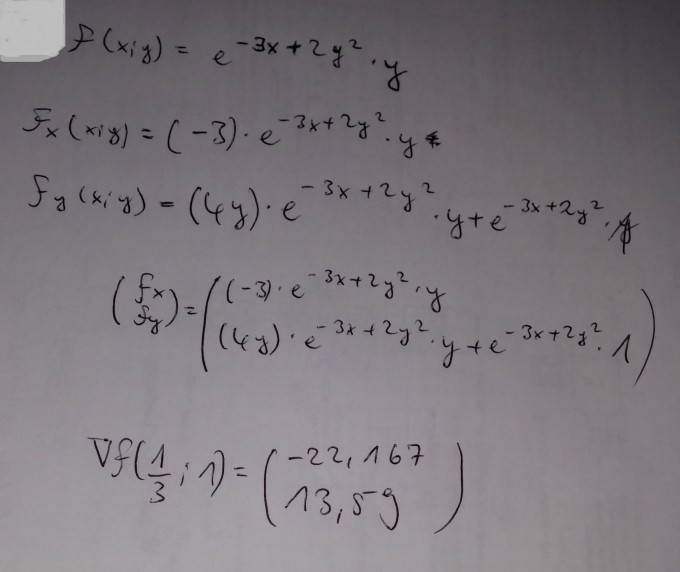 f(x;y) = e^{-3x+2y²} · y
f_x(x;y) = (-3) · e^{-3x+2y²} · y
f_y(x;y) = (4y) · e^{-3x+2y²} · y + e^{-3x+2y²} · 1
(f_x f_y) = ((-3) · e^{-3x+2y²} · y
(4y) · e^{-3x+2y²} · y + e^{-3x+2y²} · 1)
∇f(1/3 ; 1) = (-22,167
13,59)